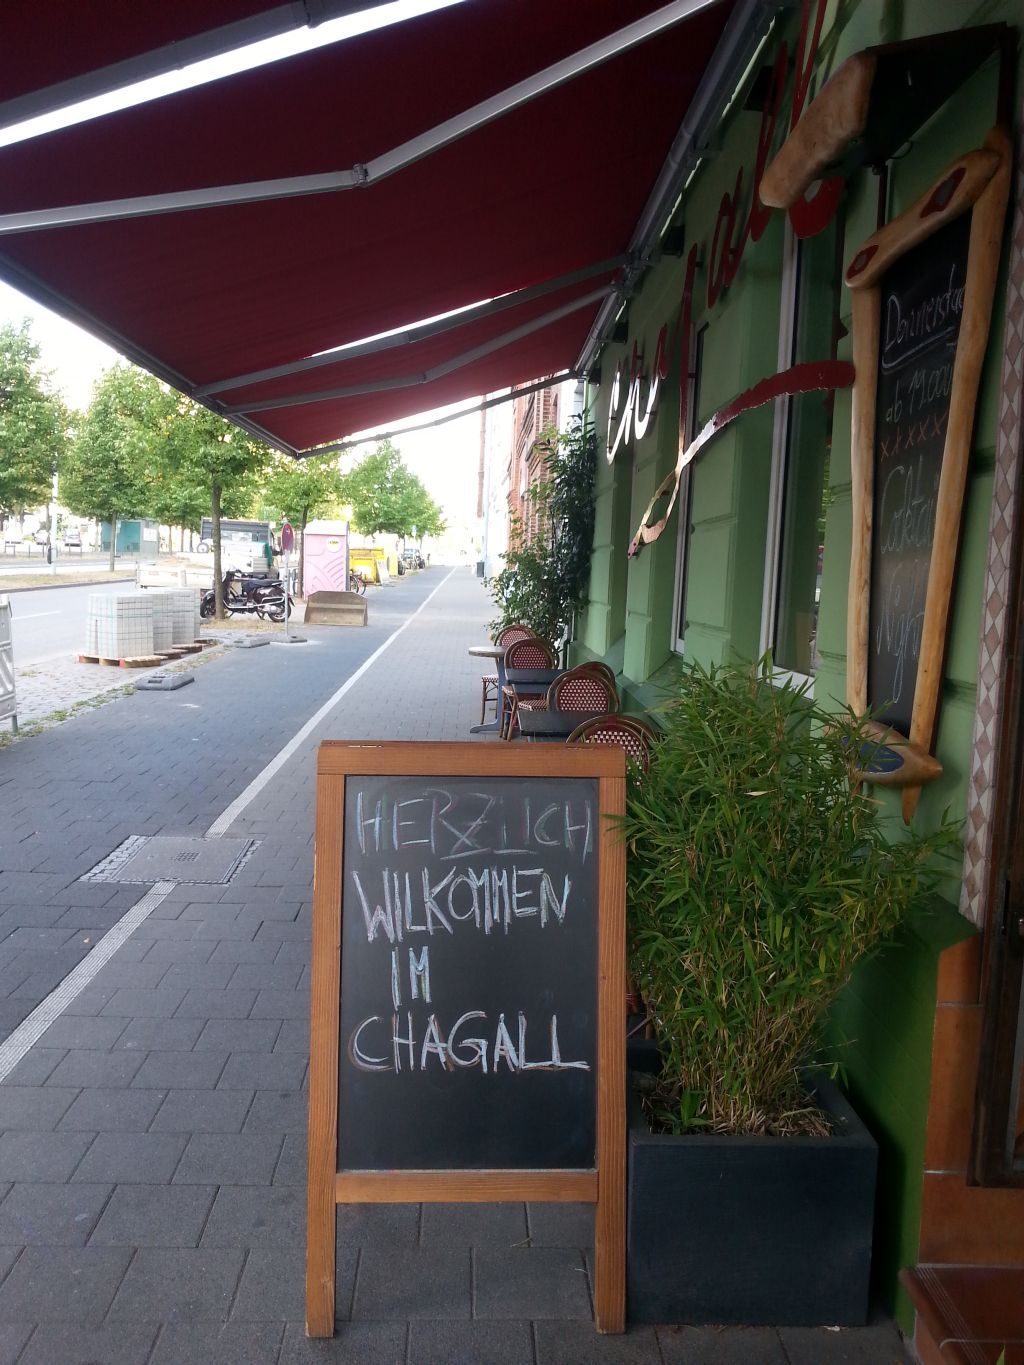 HERZLICH
WILKOMMEN
IM
CHAGALL
Chagall
Donnerstag
ab 19.00
xxxxx
Cocktail
Night